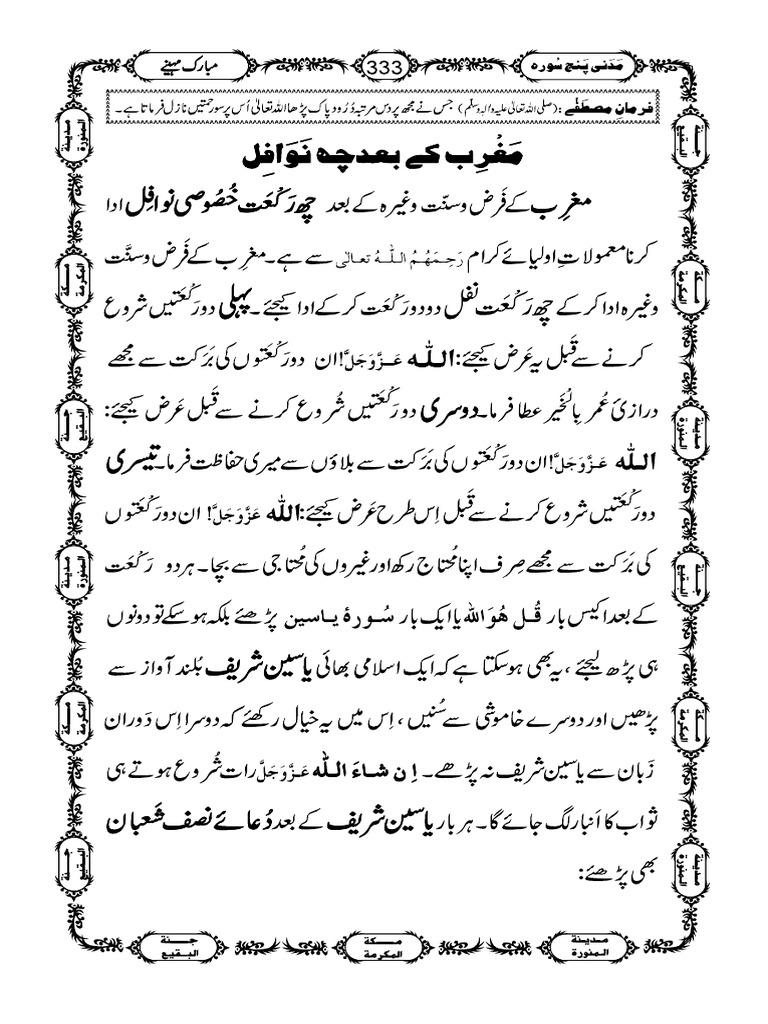 مَدَنی پَنج سُورہ
333
مبارک مہینے
فرمانِ مصطَفٰے : (صلی اللہ تعالیٰ علیہ واٰلہٖ وسلم) جس نے مجھ پر دس مرتبہ دُرُود پاک پڑھا اللہ تعالیٰ اُس پر سو رحمتیں نازل فرماتا ہے۔
مَغْرِب کے بعد چھ نَوَافِل
مغرِب کے فَرض و سنّت وغیرہ کے بعد چھ رَکْعَت خُصُوصی نوافِل ادا
کرنا معمولاتِ اولیائے کرام رَحِمَهُمُ اللّٰهُ تعالٰی سے ہے۔ مغرِب کے فَرض و سنَّت
وغیرہ ادا کر کے چھ رَکْعَت نفل دو دو رَکْعَت کر کے ادا کیجئے۔ پہلی دو رَکْعَتیں شروع
کرنے سے قَبل یہ عَرض کیجئے: اللّٰه عَزَّوَجَلَّ! ان دو رَکْعَتوں کی بَرَکت سے مجھے
درازیٔ عُمر بِالْخَیر عطا فرما۔ دوسری دو رَکْعَتیں شُروع کرنے سے قَبل عَرض کیجئے:
اللّٰه عَزَّوَجَلَّ! ان دو رَکْعَتوں کی بَرَکت سے بلاؤں سے میری حفاظت فرما۔ تیسری
دو رَکْعَتیں شروع کرنے سے قَبل اِس طرح عَرض کیجئے: اللّٰه عَزَّوَجَلَّ! ان دو رَکْعَتوں
کی بَرَکت سے مجھے صِرف اپنا مُحتاج رکھ اور غیروں کی مُحتاجی سے بچا۔ ہر دو رَکْعَت
کے بعد اکیس بار قُل هُوَ اللہ یا ایک بار سُورۂ یاسین پڑھئے بلکہ ہو سکے تو دونوں
ہی پڑھ لیجئے، یہ بھی ہو سکتا ہے کہ ایک اسلامی بھائی یاسین شریف بُلند آواز سے
پڑھیں اور دوسرے خاموشی سے سُنیں، اِس میں یہ خیال رکھئے کہ دوسرا اِس دَوران
زَبان سے یاسین شریف نہ پڑھے۔ اِن شاءَ اللّٰه عَزَّوَجَلَّ رات شُروع ہوتے ہی
ثواب کا اَنبار لگ جائے گا۔ ہر بار یاسین شریف کے بعد دُعائے نصف شَعبان
بھی پڑھئے:
جنة البقيع
مكة المكرمة
مدينة المنورة
جنة البقيع
مكة المكرمة
مدينة المنورة
مدينة المنورة
مكة المكرمة
جنة البقيع
مدينة المنورة
مكة المكرمة
جنة البقيع
مدينة المنورة
مكة المكرمة
جنة البقيع